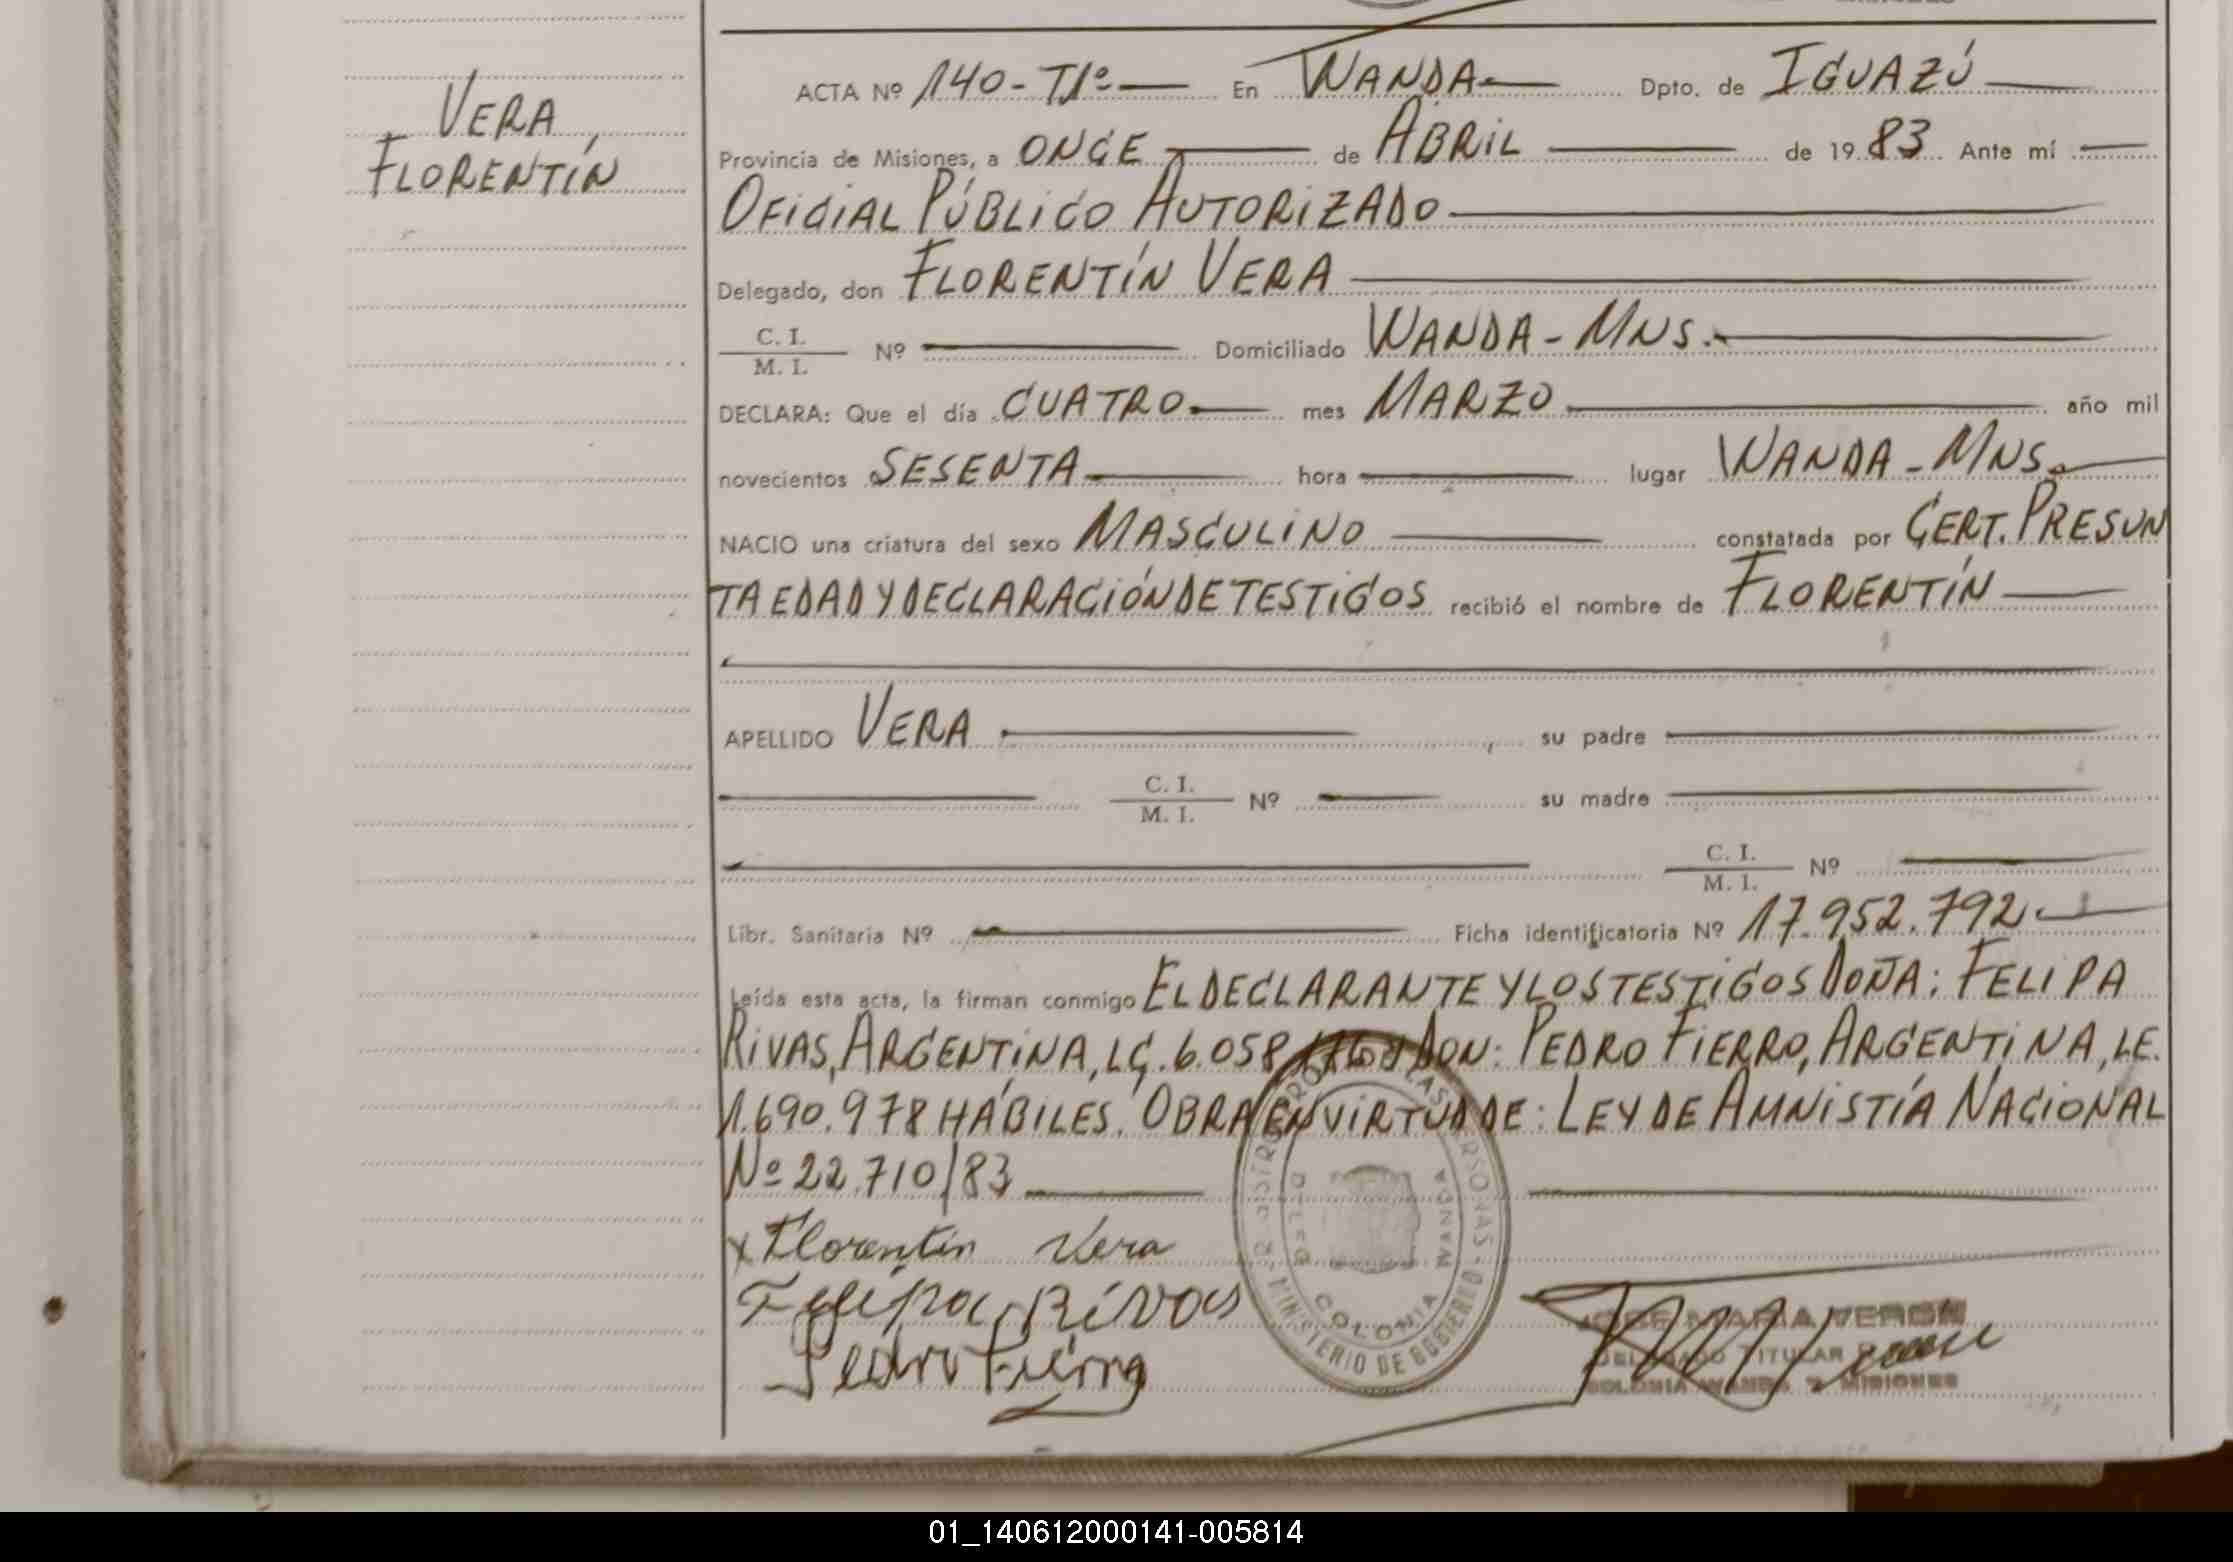 VERA,
FLORENTÍN
ACTA Nº 140-Tıº En WANDA Dpto. de IGUAZÚ
Provincia de Misiones, a ONCE de ABRIL de 1983 Ante mí
OFICIAL PÚBLICO AUTORIZADO
Delegado, don FLORENTÍN VERA
C. I.
M. I.
Nº Domiciliado WANDA-MNS.
DECLARA: Que el día CUATRO mes MARZO año mil
novecientos SESENTA hora lugar WANDA-MNS.
NACIO una criatura del sexo MASCULINO constatada por CERT. PRESUN
TA EDAD Y DECLARACIÓN DE TESTIGOS recibió el nombre de FLORENTÍN
APELLIDO VERA su padre
C. I.
M. I.
Nº su madre
C. I.
M. I.
Nº
Libr. Sanitaria Nº Ficha identificatoria Nº 17.952.792
Leída esta acta, la firman conmigo EL DECLARANTE Y LOS TESTIGOS DOÑA: FELIPA
RIVAS, ARGENTINA, LC. 6.058 Y DON: PEDRO FIERRO, ARGENTINA, LE.
1.690.978 HÁBILES. OBRA EN VIRTUD DE: LEY DE AMNISTÍA NACIONAL
Nº 22.710/83
x Florentín Vera
Felipa Rivas
Pedro Fierro
LAS PERSONAS - MINISTERIO DE GOBIERNO
COLONIA WANDA
JOSE MARIA VERON
DELEGADO TITULAR
COLONIA WANDA MISIONES
01_140612000141-005814